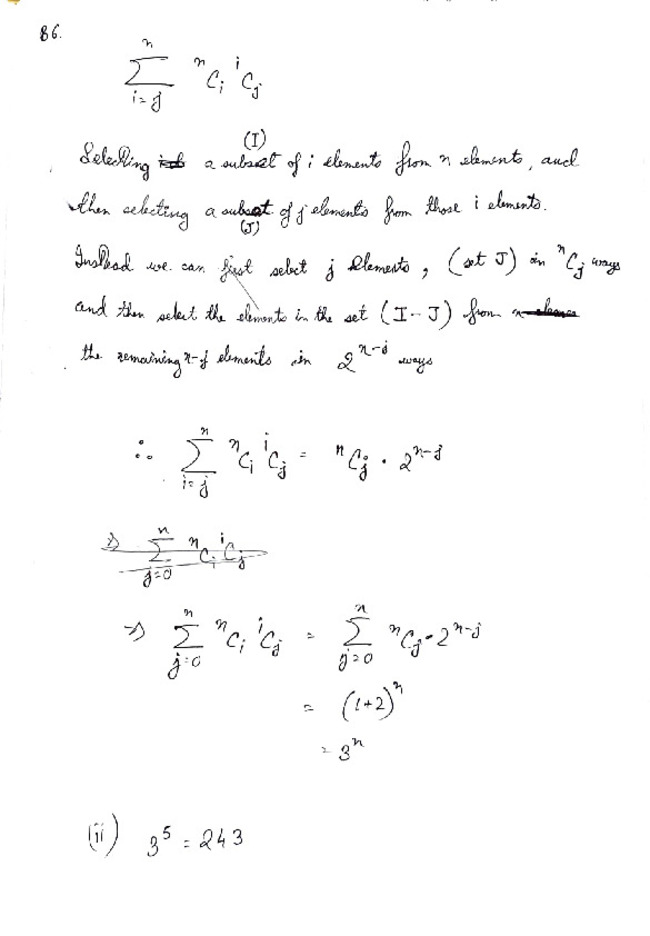 86.
n
∑ ⁿCᵢ ⁱCⱼ
i=j
(I)
Selecting a subset of i elements from n elements, and
then selecting a subset of j elements from those i elements.
(J)
Instead we can first select j elements, (set J) in ⁿCⱼ ways
and then select the elements in the set (I-J) from
the remaining n-j elements in 2ⁿ⁻ʲ ways
n
∴ ∑ ⁿCᵢ ⁱCⱼ = ⁿCⱼ · 2ⁿ⁻ʲ
i=j
n
⇒ ∑ ⁿCᵢ ⁱCⱼ
j=0
n n
⇒ ∑ ⁿCᵢ ⁱCⱼ = ∑ ⁿCⱼ · 2ⁿ⁻ʲ
j=0 j=0
= (1+2)ⁿ
= 3ⁿ
(ii) 3⁵ = 243